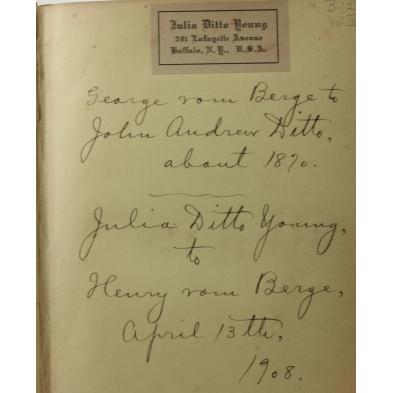 Julia Ditto Young
591 Lafayette Avenue
Buffalo, N.Y., U.S.A.
B-13
Vol I
George vom Berge to
John Andrew Ditto,
about 1870.
Julia Ditto Young,
to
Henry vom Berge,
April 13th,
1908.